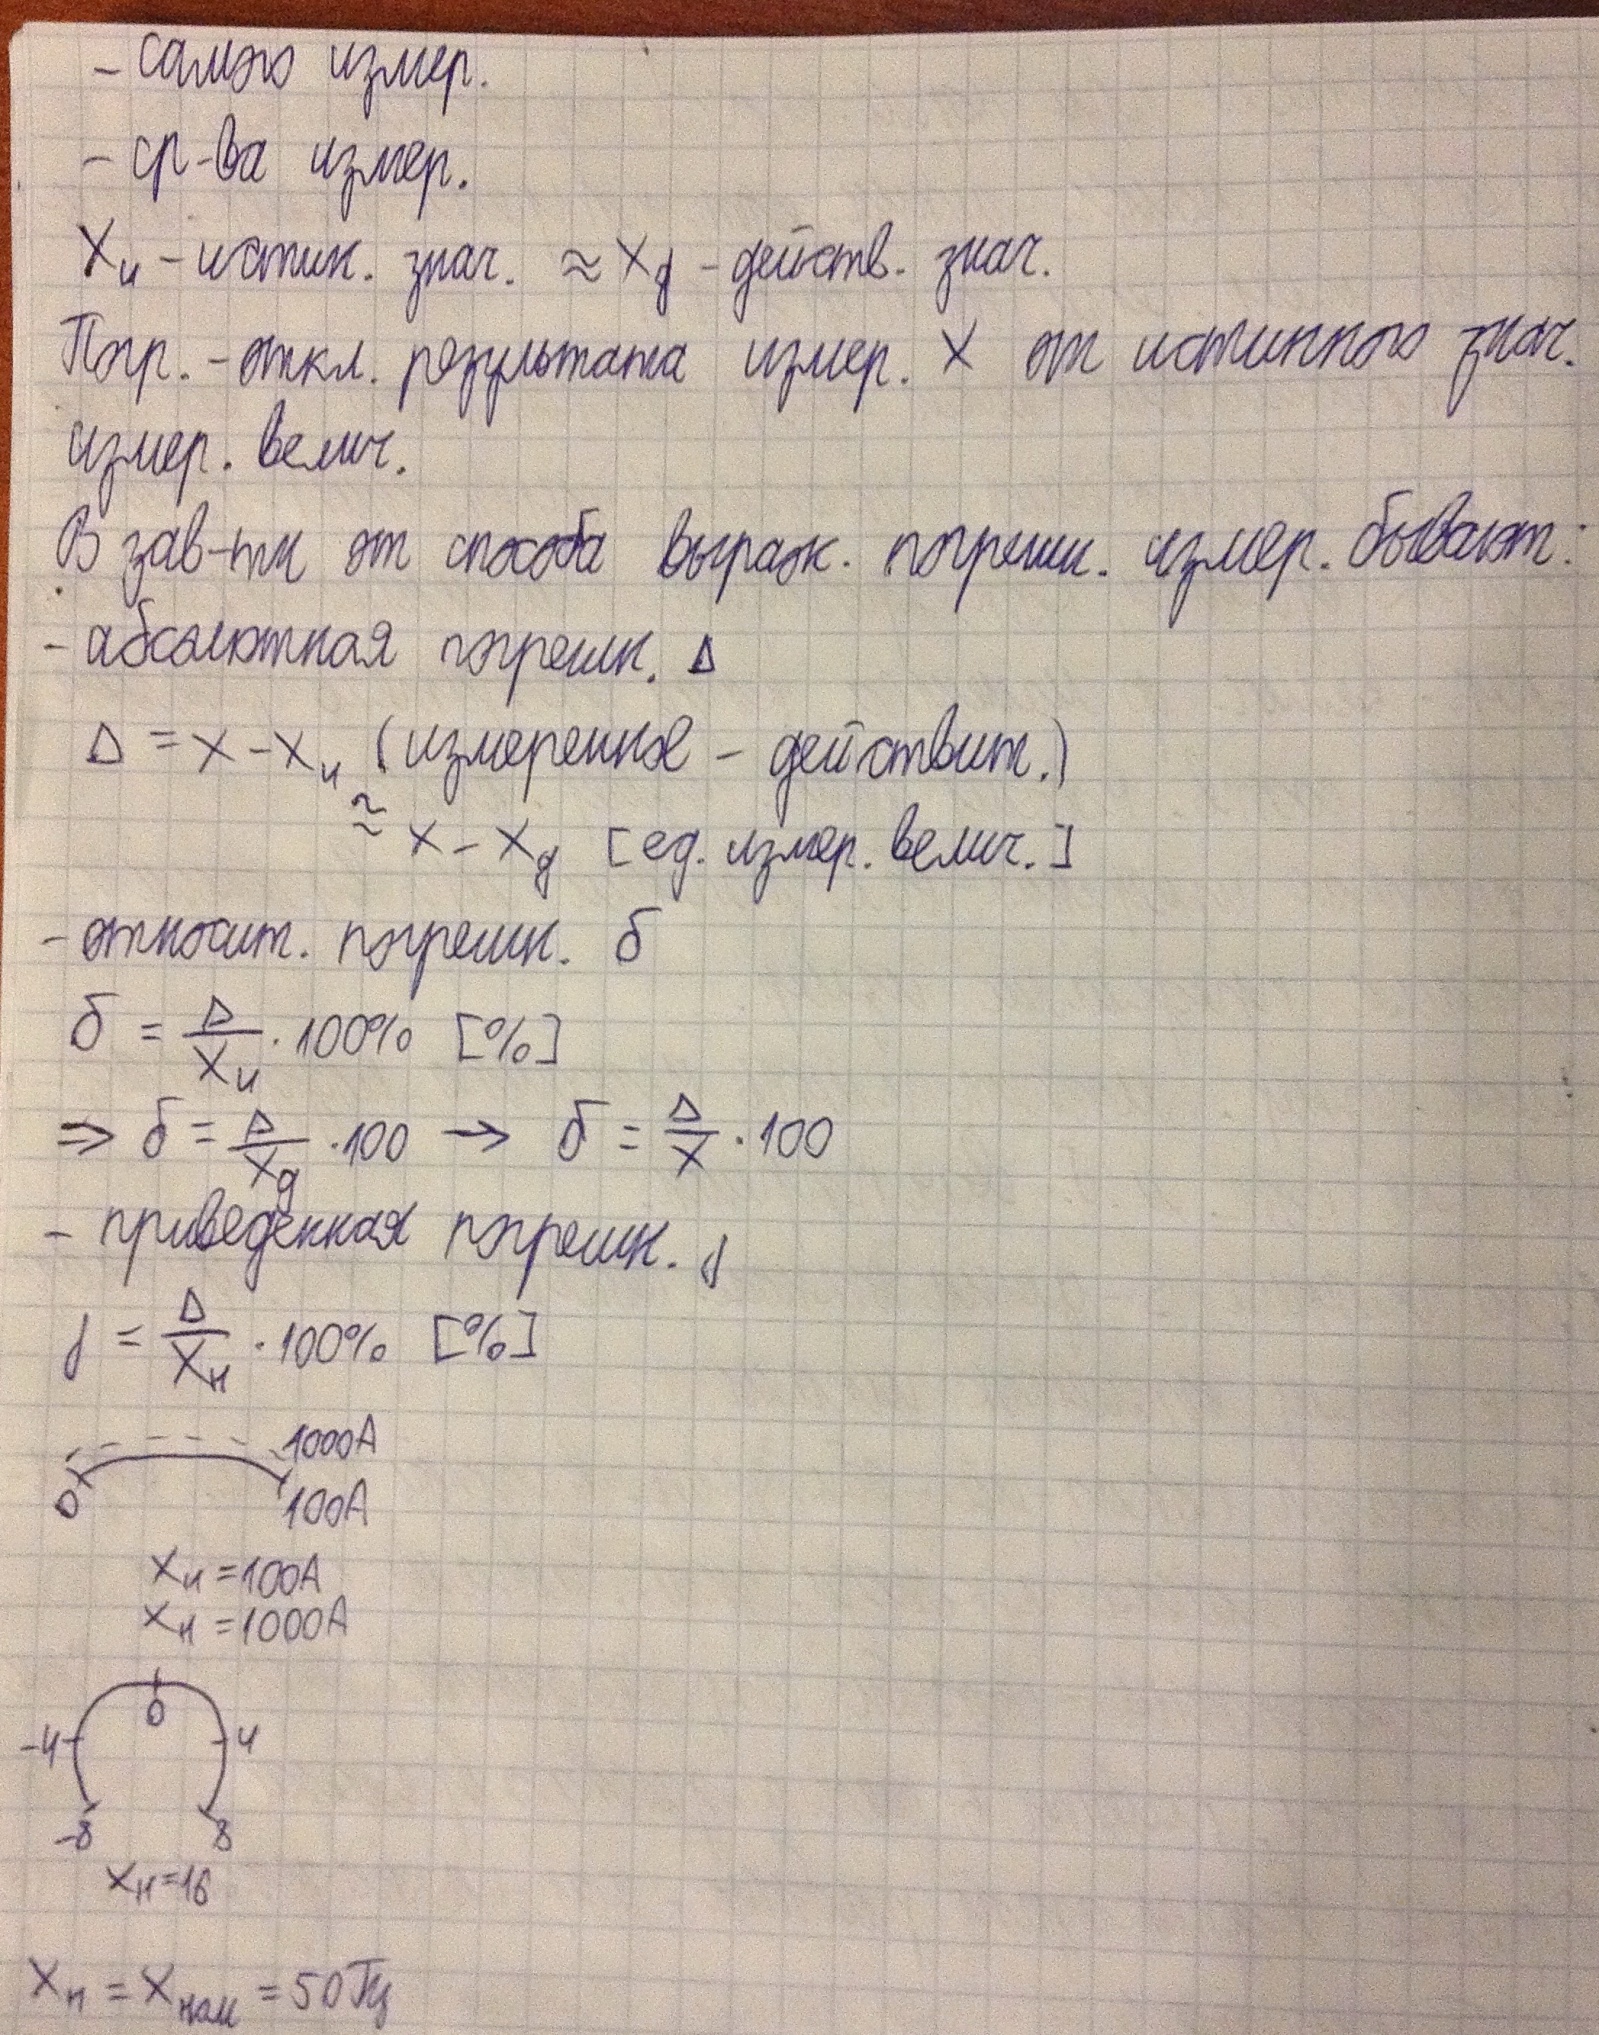 - самого измер.
- ср-ва измер.
Xи - истин. знач. ≈ Xд - действ. знач.
Погр. - откл. результата измер. X от истинного знач.
измер. велич.
В зав-ти от способа выраж. погрешн. измер. бывают:
- абсолютная погрешн. Δ
Δ = X - Xи (измеренное - действит.)
≈ X - Xд [ед. измер. велич.]
- относит. погрешн. δ
δ = Δ/Xи · 100% [%]
⇒ δ = Δ/Xд · 100 → δ = Δ/X · 100
- приведенная погрешн. γ
γ = Δ/Xн · 100% [%]
1000А
0 100А
Xн = 100А
Xн = 1000А
0
-4 4
-8 8
Xн = 16
Xн = Xном = 50 Гц